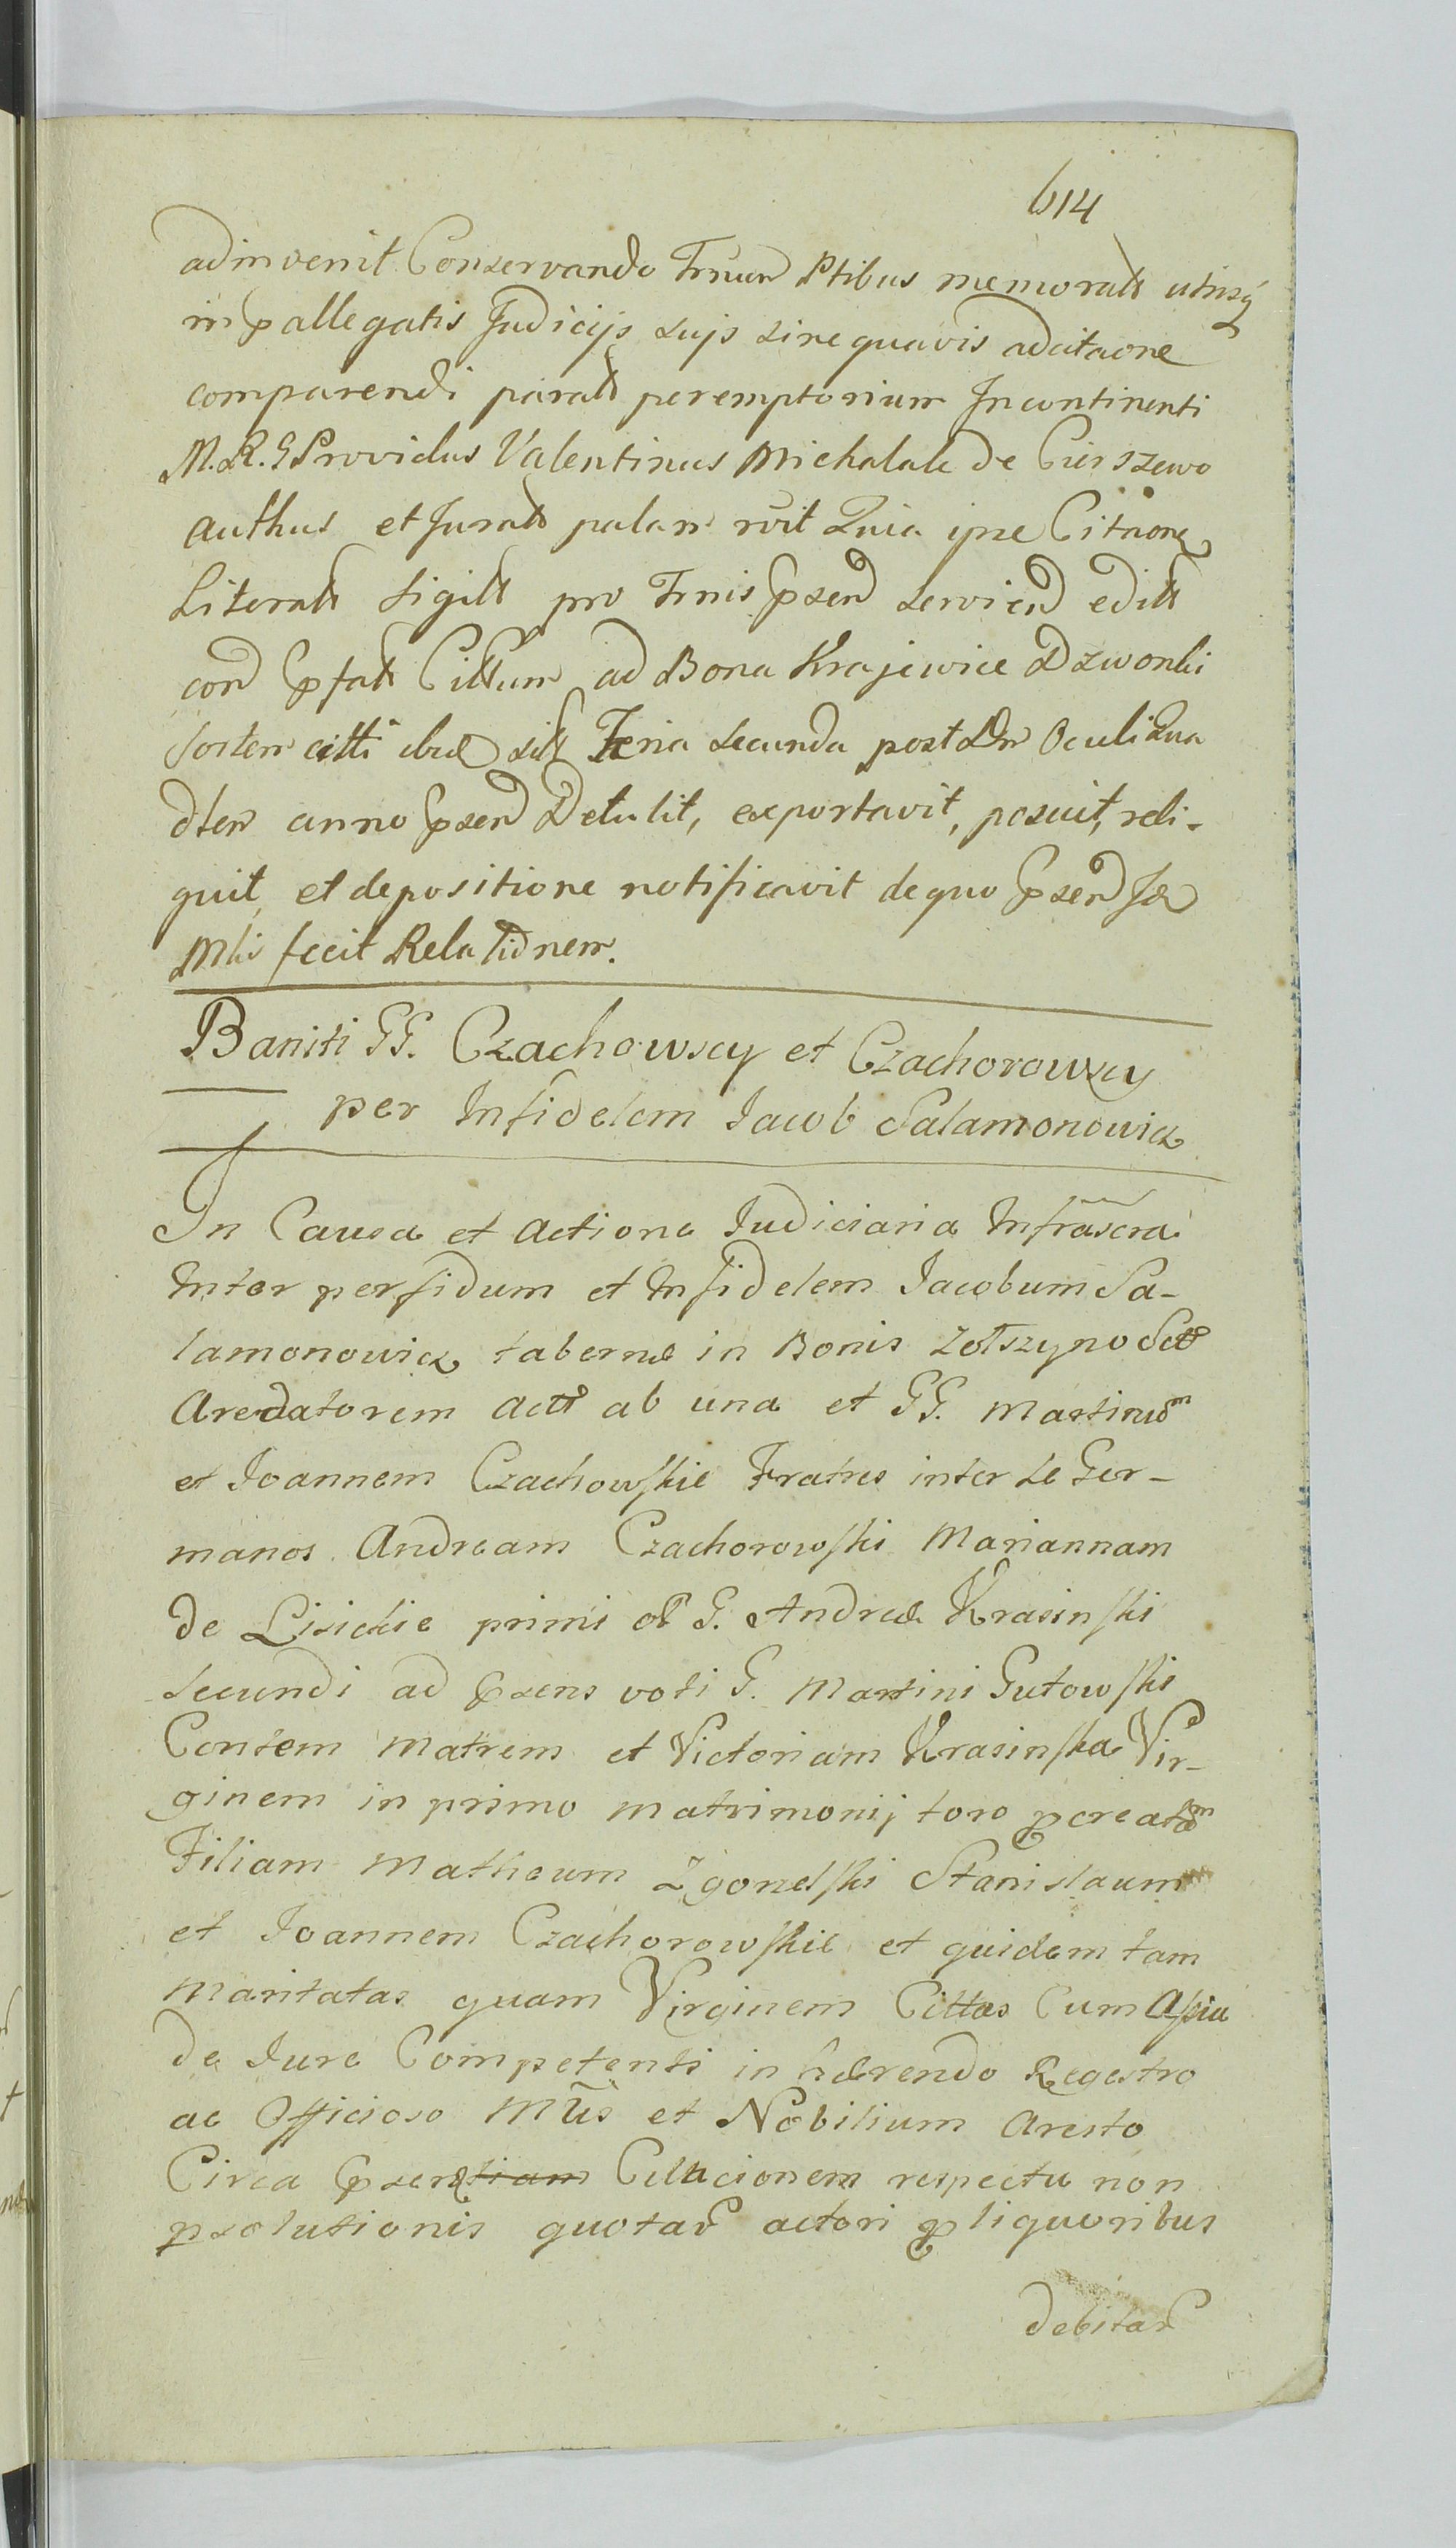 614
adinvenit Conservando Trnum Ptibus memorats utrisq
in pallegatis Judicijs suis sine quavis adcitaone
comparendi parats peremptorium Incontinenti
M. R. G Providus Valentinus Michalak de Cierszewo
authus et Jurats palam rvit Quia ipse Citaone
Literats sigills pro Trnis psen serviend edits
con pfats Cittum ad Bona Krajewice Dzwonki
sortem citti Feria secunda post Dn Oculi Qua
dten anno psen Detulit, exportavit, posuit, reli-
quit, et depositione notificavit de quo psen
Mlis fecit Relationem.
Baniti GG. Czachowscy et Czachorowscy
per Infidelem Jacob Salamonowicz
In Causa et actione Judiciaria Infrascra
Inter perfidum et Infidelem Jacobum Sa-
lamonowicz tabernæ in Bonis Zółszyno
Arendatorem act ab una et GG. Martinum
et Joannem Czachowskie Fratres inter se Ger-
manos Andream Czachorowski Mariannam
de Lisickie primi ol G. Andreæ Krasinski
secundi ad psens voti G. Martini Gutowski
Contem Matrem et Victoriam Krasinska Vir-
ginem in primo matrimonij toro pcreatam
Filiam Matheum Zgonelski Stanislaum
et Joannem Czachorowskie et quidem tam
Maritatas quam Virginem Cittas Cum Assia
de Jure Competenti inhærendo Regestro
ac Officioso Mtis et Nobilium Aresto
Circa psentiam Cittacionem respectu non
psolutionis quotar actori p liquoribus
debitar